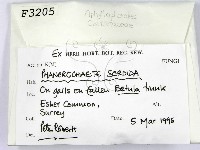 F3205
Ex HERB. HORT. BOT. REG. KEW.
FUNGI
PHANEROCHAETE SORDIDA
On galls on fallen Betula trunk
Esher Common,
Surrey
5 Mar 1996